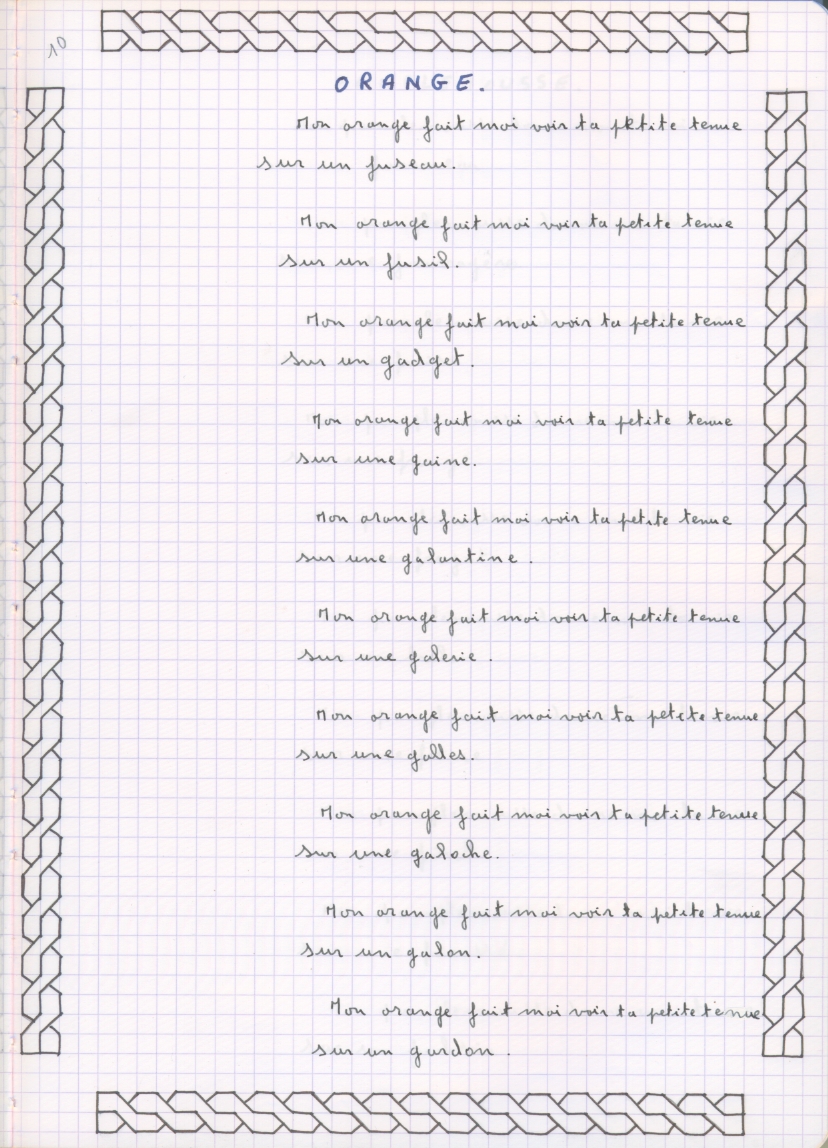 10
ORANGE.
Mon orange fait moi voir ta petite tenue
sur un fuseau.
Mon orange fait moi voir ta petite tenue
sur un fusil.
Mon orange fait moi voir ta petite tenue
sur un gadget.
Mon orange fait moi voir ta petite tenue
sur une gaine.
Mon orange fait moi voir ta petite tenue
sur une galantine.
Mon orange fait moi voir ta petite tenue
sur une galerie.
Mon orange fait moi voir ta petite tenue
sur une galles.
Mon orange fait moi voir ta petite tenue
sur une galoche.
Mon orange fait moi voir ta petite tenue
sur un galon.
Mon orange fait moi voir ta petite tenue
sur un gardon.